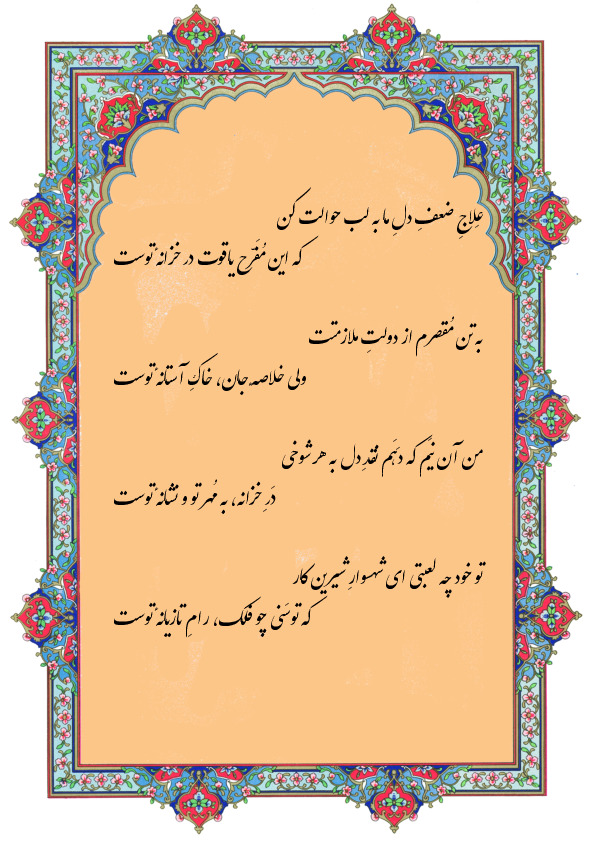 عِلاجِ ضعفِ دلِ ما به لب حوالت کن
که این مُفَرِّح یاقوت در خزانهٔ توست
به تن مُقصرم از دولتِ ملازمتت
ولی خلاصه جان، خاکِ آستانهٔ توست
من آن نِیَم که دهَم نقدِ دل به هر شوخی
دَرِ خزانه، به مُهر تو و نشانهٔ توست
تو خود چه لعبتی ای شهسوارِ شیرین کار
که توسَنی چو فلک، رامِ تازیانهٔ توست